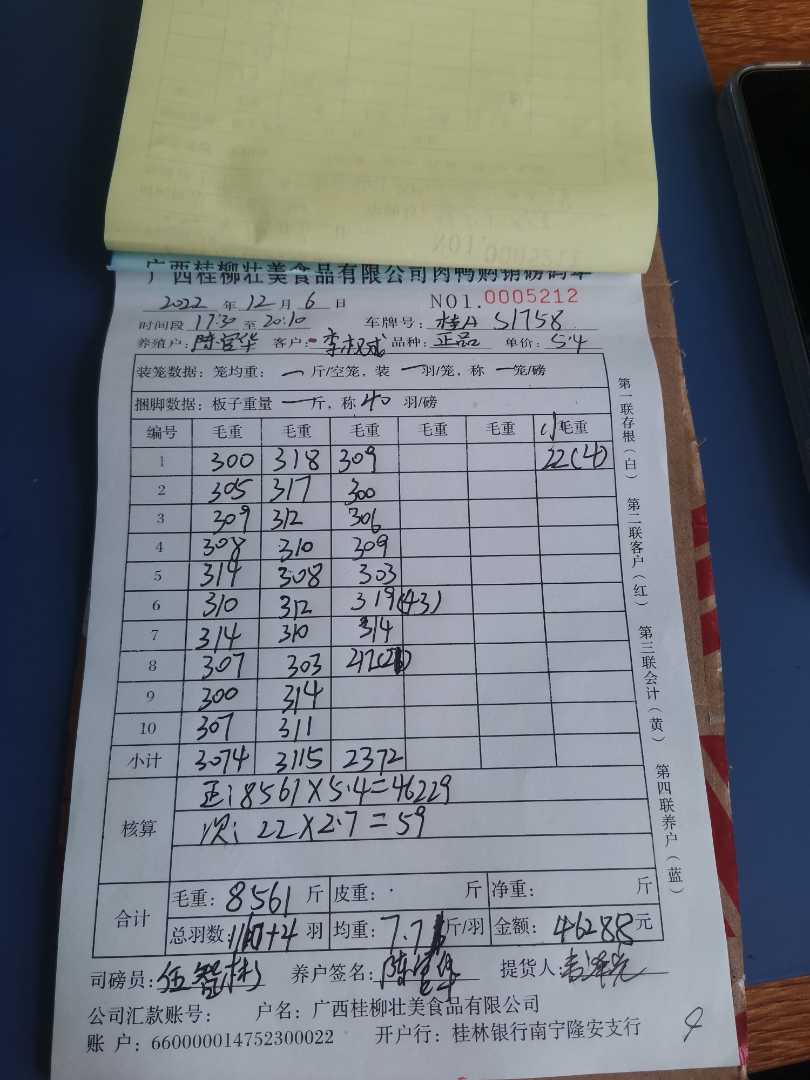 广西桂柳壮美食品有限公司肉鸭购销磅码单
2022 年 12 月 6 日 NO1.0005212
时间段 17:30 至 20:10 车牌号: 桂A S1758
养殖户: 陈官华 客户: 李权成 品种: 正品 单价: 5.4
装笼数据: 笼均重: 一 斤/空笼, 装 一 羽/笼, 称 一 笼/磅
捆脚数据: 板子重量 一 斤, 称 40 羽/磅
编号 毛重 毛重 毛重 毛重 毛重 小毛重
1 300 318 309 22(4)
2 305 317 300
3 309 312 306
4 308 310 309
5 314 308 303
6 310 312 319(43)
7 314 310 314
8 307 303 212
9 300 314
10 307 311
小计 3074 3115 2372
核算
正: 8561×5.4=46229
次: 22×2.7=59
合计
毛重: 8561 斤 皮重: 斤 净重: 斤
总羽数: +4 羽 均重: 7.7 斤/羽 金额: 46288 元
司磅员: 伍智彬 养户签名: 提货人:
公司汇款账号: 户名: 广西桂柳壮美食品有限公司
账 户: 660000014752300022 开户行: 桂林银行南宁隆安支行
第一联存根(白) 第二联客户(红) 第三联会计(黄) 第四联养户(蓝)